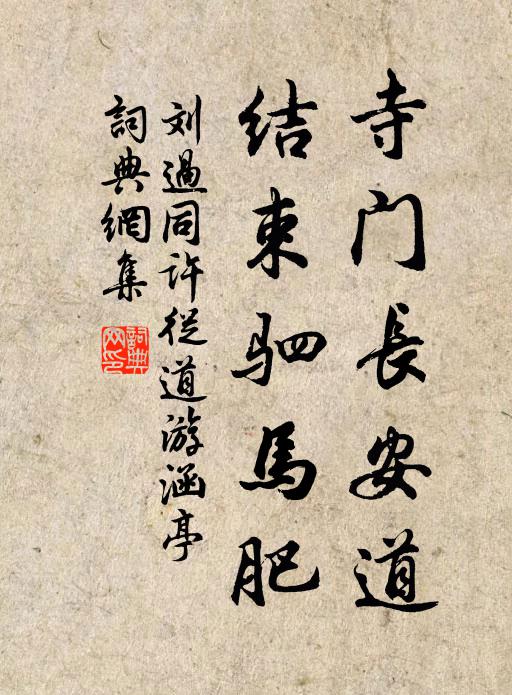 寺门長安道
结束驷馬肥
刘過同许從道游涵亭
詞典網集
詞典网印